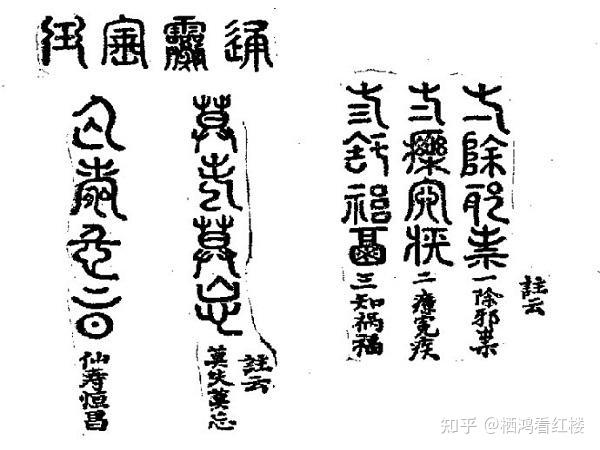 通靈寶玉
莫失莫忘
註云
莫失莫忘
仙壽恒昌
仙寿恒昌
一除邪祟
註云
一除邪祟
二療冤疾
二療冤疾
三知禍福
三知祸福
知乎 @栖鸿看红楼